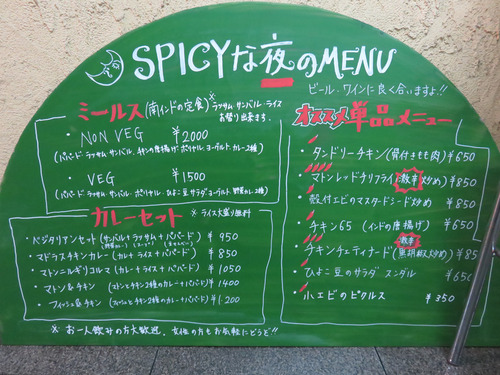 SPICYな夜のMENU
ビール・ワインに良く合いますよ!!
ミールス(南インドの定食)※ラッサム・サンバル・ライス
お替り出来ます。
・NON VEG ¥2000
(パパド・ラッサム・サンバル・チキンの唐揚げ・ポリヤル・ヨーグルト・カレー2種)
・VEG ¥1500
(パパド・ラッサム・サンバル・ポリヤル・ひよこ豆サラダ・ヨーグルト・野菜カレー2種)
カレーセット ※ライス大盛り無料
・ベジタリアンセット(サンバル+ラッサム+パパード) ¥950
・マドラスチキンカレー(カレー+ライス+パパード) ¥850
・マトンニルギリコルマ(カレー+ライス+パパード) ¥1050
・マトン&チキン(マトンとチキン2種のカレー+パパード) ¥1400
・フィッシュ&チキン(フィッシュとチキン2種のカレー+パパード) ¥1.200
※お一人飲みの方大歓迎、女性の方もお気軽にどうぞ!!
オススメ単品メニュー
・タンドリーチキン(骨付きもも肉) ¥650
・マトンレッドチリフライ(激辛炒め) ¥850
・殻付エビのマスタードシード炒め ¥850
・チキン65(インドの唐揚げ) ¥650
激辛
・チキンチェティナード(黒胡椒炒め) ¥85
・ひよこ豆のサラダ スンダル ¥650
・小エビのピクルス ¥350